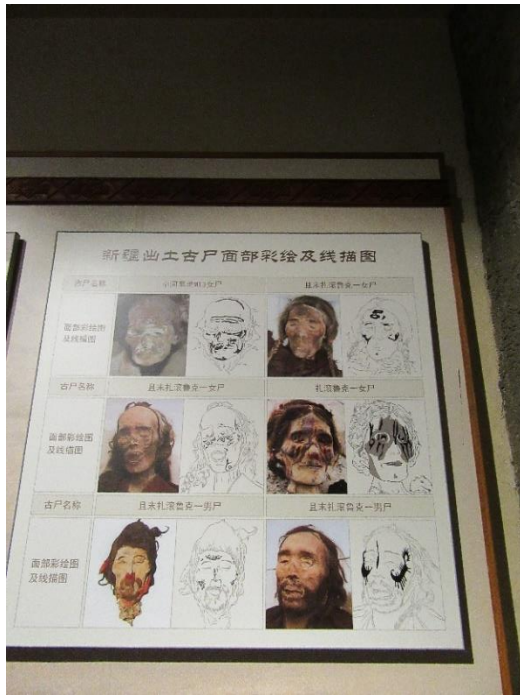 新疆出土古尸面部彩绘及线描图
古尸名称
且末扎滚鲁克一女尸
面部彩绘图
及线描图
古尸名称
且末扎滚鲁克一女尸
扎滚鲁克一女尸
面部彩绘图
及线描图
古尸名称
且末扎滚鲁克一男尸
且末扎滚鲁克一男尸
面部彩绘图
及线描图